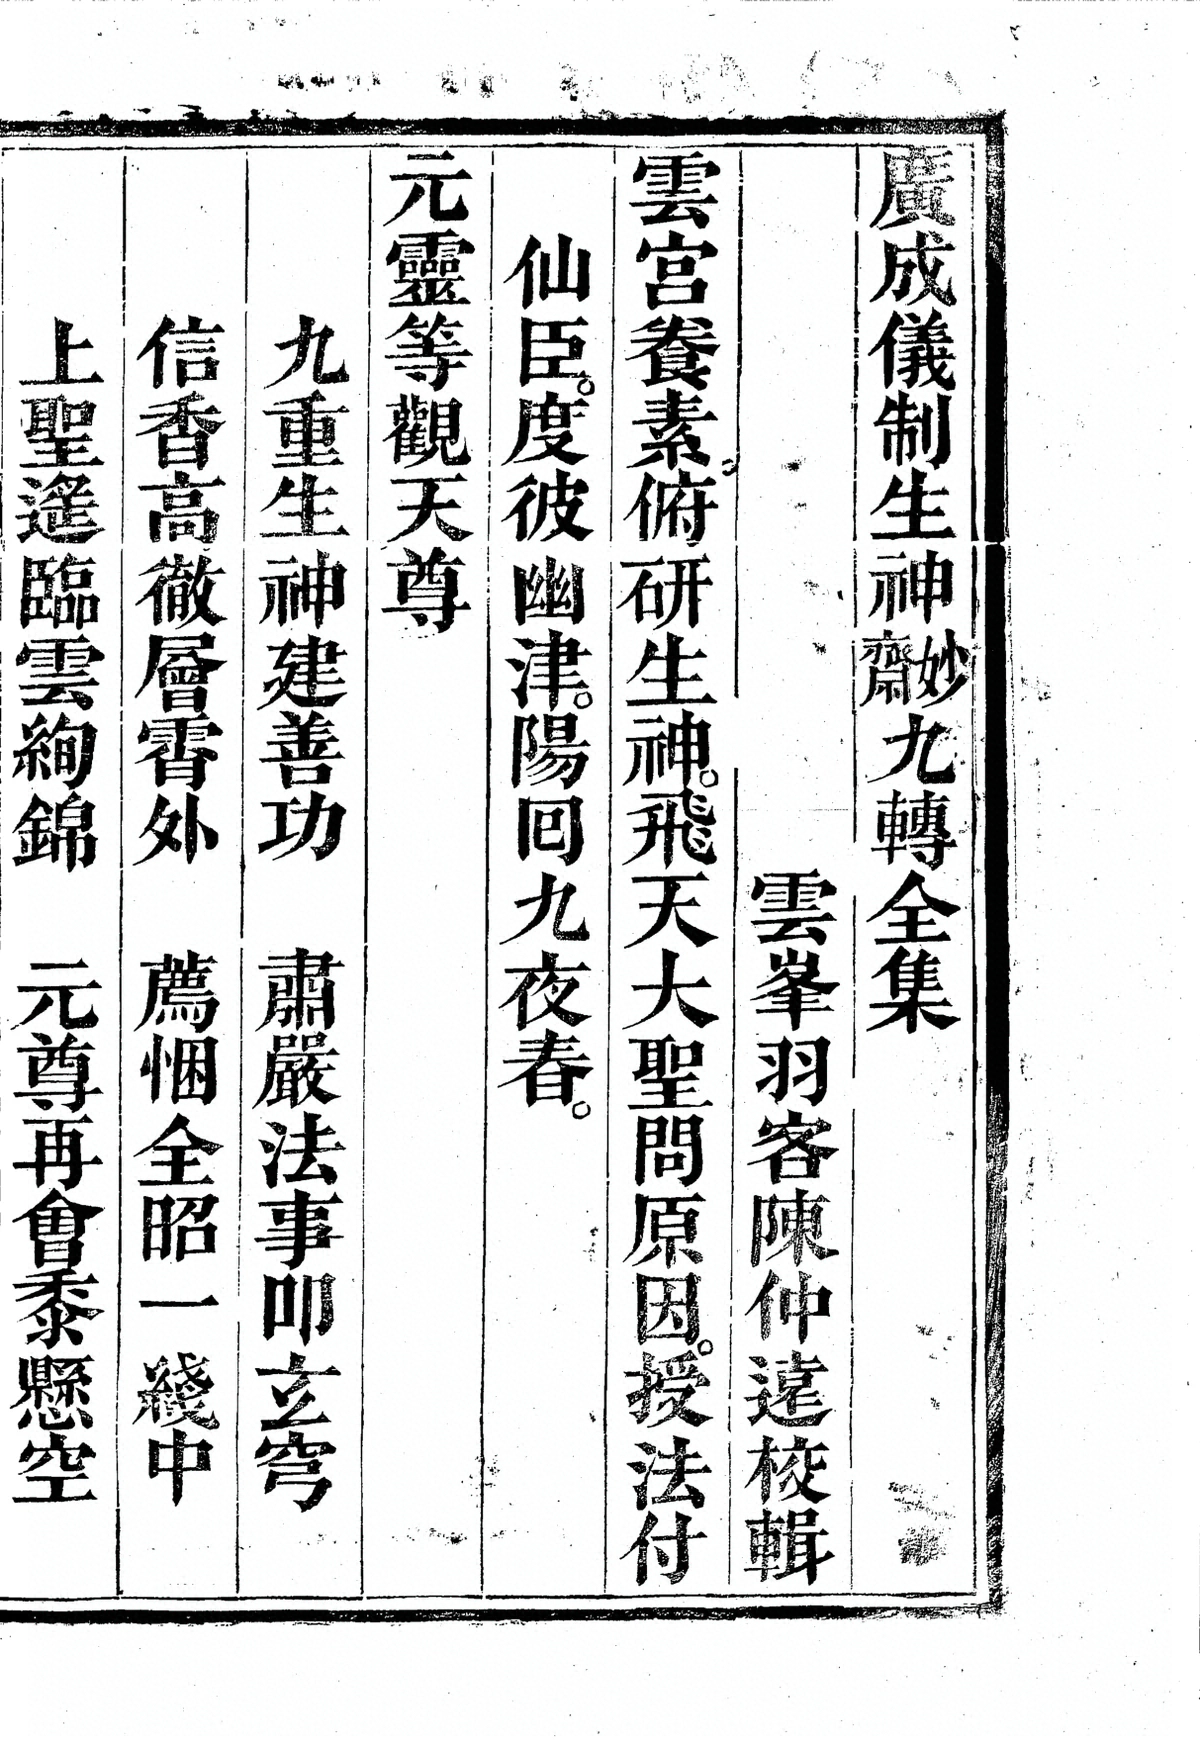 廣成儀制生神妙齋九轉全集
雲峯羽客陳仲遠校輯
雲宮養素。俯研生神。飛天大聖問原因。授法付
仙臣。度彼幽津。陽回九夜春。
元靈等觀天尊
九重生神建善功　肅嚴法事叩玄穹
信香高徹層霄外　薦悃全昭一綫中
上聖遙臨雲絢錦　元尊再會黍懸空